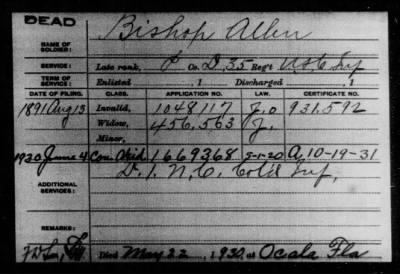 DEAD
Bishop Allen
NAME OF SOLDIER:
SERVICE: Late rank, Co. D, 35 Reg't U.S.C. Inf
TERM OF SERVICE: Enlisted , 1 Discharged , 1
DATE OF FILING. CLASS. APPLICATION NO. LAW. CERTIFICATE NO.
1891 Aug 13 Invalid, 1048117 J.O 931.592
Widow, 456,563 J.
Minor,
1930 June 4 Con. Wid. 1669368 5-1-20 A. 10-19-31
D. 1. N.C. Col'd Inf,
ADDITIONAL SERVICES:
REMARKS:
Died May 22, 1930, at Ocala Fla